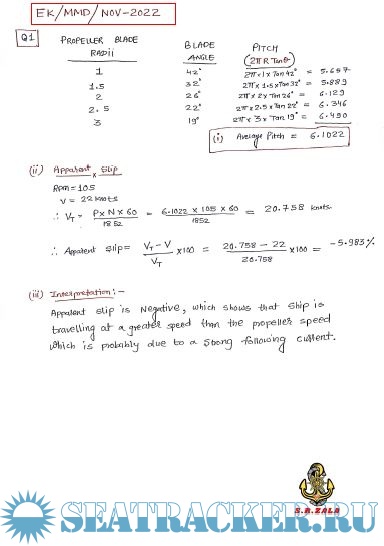 EK/MMD/NOV-2022
Q1 PROPELLER BLADE RADII BLADE ANGLE PITCH (2πR Tanθ)
1 42° 2π×1×Tan 42° = 5.657
1.5 32° 2π×1.5×Tan 32° = 5.889
2 26° 2π×2×Tan 26° = 6.129
2.5 22° 2π×2.5×Tan 22° = 6.346
3 19° 2π×3×Tan 19° = 6.490
(i) Average Pitch = 6.1022
(ii) Apparent Slip
Rpm = 105
V = 22 knots
∴ VT = P×N×60 / 1852 = 6.1022 × 105 × 60 / 1852 = 20.758 knots.
∴ Apparent Slip = VT - V / VT ×100 = 20.758 - 22 / 20.758 ×100 = -5.983%
(iii) Interpretation:-
Apparent slip is Negative, which shows that ship is
travelling at a greater speed than the propeller speed
which is probably due to a strong following current.
S.R.ZALA
SEATRACKER.RU